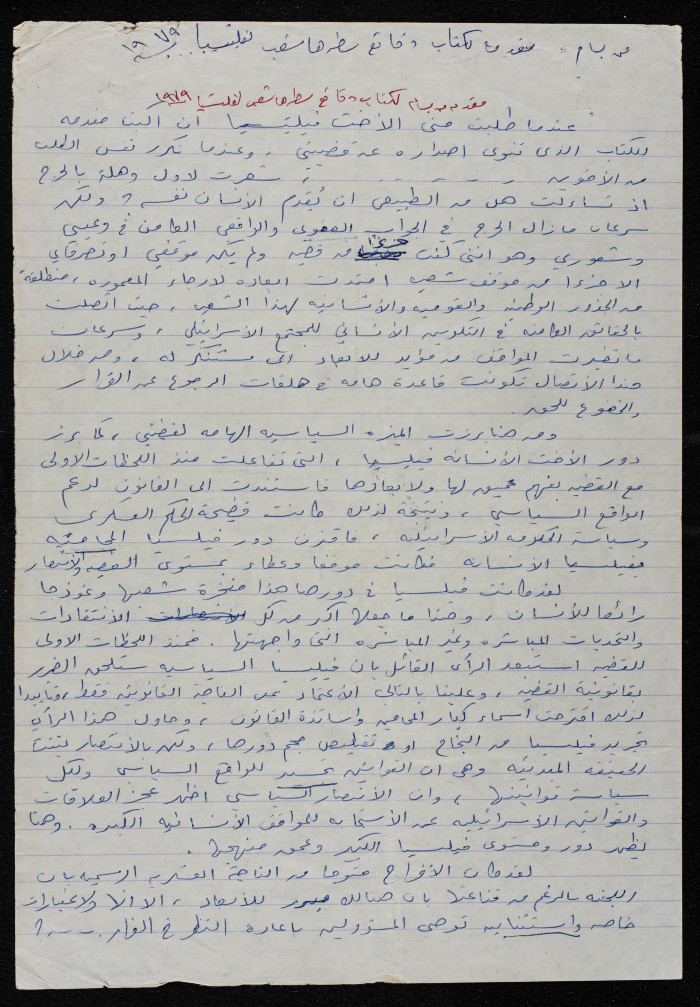 من بسام - مقدمة لكتاب وقائع سطرها شعب لفلتسيا ١٩٧٩
مقدمه من بسام لكتاب وقائع سطرها شعب لفلتسيا ١٩٧٩
عندما طلبت مني الأخت فيليتسيا ان اكتب مقدمه
للكتاب الذي تنوي اصداره عن قضيتي، وعندما تكرر نفس الطلب
من الأخوين .......... شعرت لأول وهلة بالحرج
اذ تساءلت هل من الطبيعي ان يُقدم الإنسان نفسه؟ ولكن
سرعان ما زال الحرج في الجواب العفوي والواقعي الكامن في وعيي
وشعوري وهو انني كنت جزءا من قضيه ولم يكن موقفي او تصرفاتي
الا جزءا من موقف شعبي امتدت ابعاده لارجاء المعموره، منطلقة
من الجذور الوطنيه والقوميه والأنسانيه لهذا الشعب، حيث اتصلت
بالحقائق الكامنه في التكوين الأنساني للمجتمع الأسرائيلي، وسرعان
ما تغيرت المواقف من مؤيد للأبعاد الى مستنكر له، ومن خلال
هذا الأتصال تكونت قاعدة هامه في حلقات الرجوع عن القرار
والخضوع للحق.
ومن هنا برزت الميزه السياسيه الهامه لقضيتي، كما برز
دور الأخت الأنسانه فيليسيا، التي تفاعلت منذ اللحظات الاولى
مع القضيه بفهم عميق لها ولأبعادها فاستندت الى القانون لدعم
الواقع السياسي، ونتيجة لذلك كانت فضيحة للحكم العسكري
وسياسة الحكومه الأسرائيليه، فاقترن دور فيليسيا المحاميه
بفيليسيا الأنسانه فكانت موقفا وعطاء بمستوى القضيه والأنتصار
لقد كانت فيليسيا في دورها هذا مفخرة شعبها ونموذجا
رائعا للأنسان، وهذا ما جعلها اكبر من كل الأنتقادات
والتحديات المباشره وغير المباشره التي واجهتها. فمنذ اللحظات الاولى
للقضيه استبعد الرأي القائل بان فيليسيا السياسيه ستلحق الضرر
بقانونية القضيه، وعلينا بالتالي الأعتماد على الناحية القانونيه فقط، وتأييدا
لذلك اقترحت اسماء كبار المحامين واساتذة القانون، وحاول هذا الرأي
تجريد فيليسيا من النجاح او تقليص حجم دورها، ولكن بالأنتصار بينت
الحقيقه المبدئيه وهي ان القوانين تجسيد للواقع السياسي ولكل
سياسة قوانينها، وان الأنتصار السياسي اظهر عجز العلاقات
والقوانين الأسرائيليه عن الأستجابه للمواقف الأنسانيه الكبيره. وهنا
يظهر دور ومستوى فيليسيا الكبير وعمق منهجها.
لقد كان الأفراج متوجا من الناحية العسكريه الرسميه بان
اللجنه بالرغم من قناعتها بان هنالك مبرر للأبعاد، الا انها ولاعتبارات
خاصه واستثنائيه توصي المسؤولين باعادة النظر في القرار ....؟